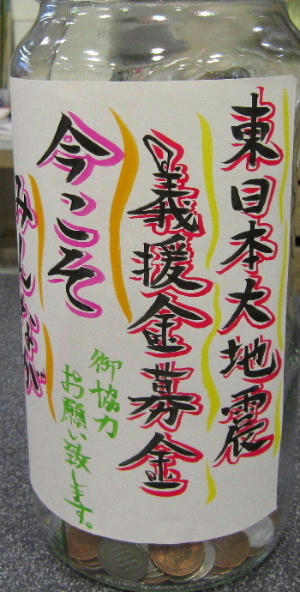 東日本大地震
義援金募金
今こそ
みんなが
御協力
お願い致します。